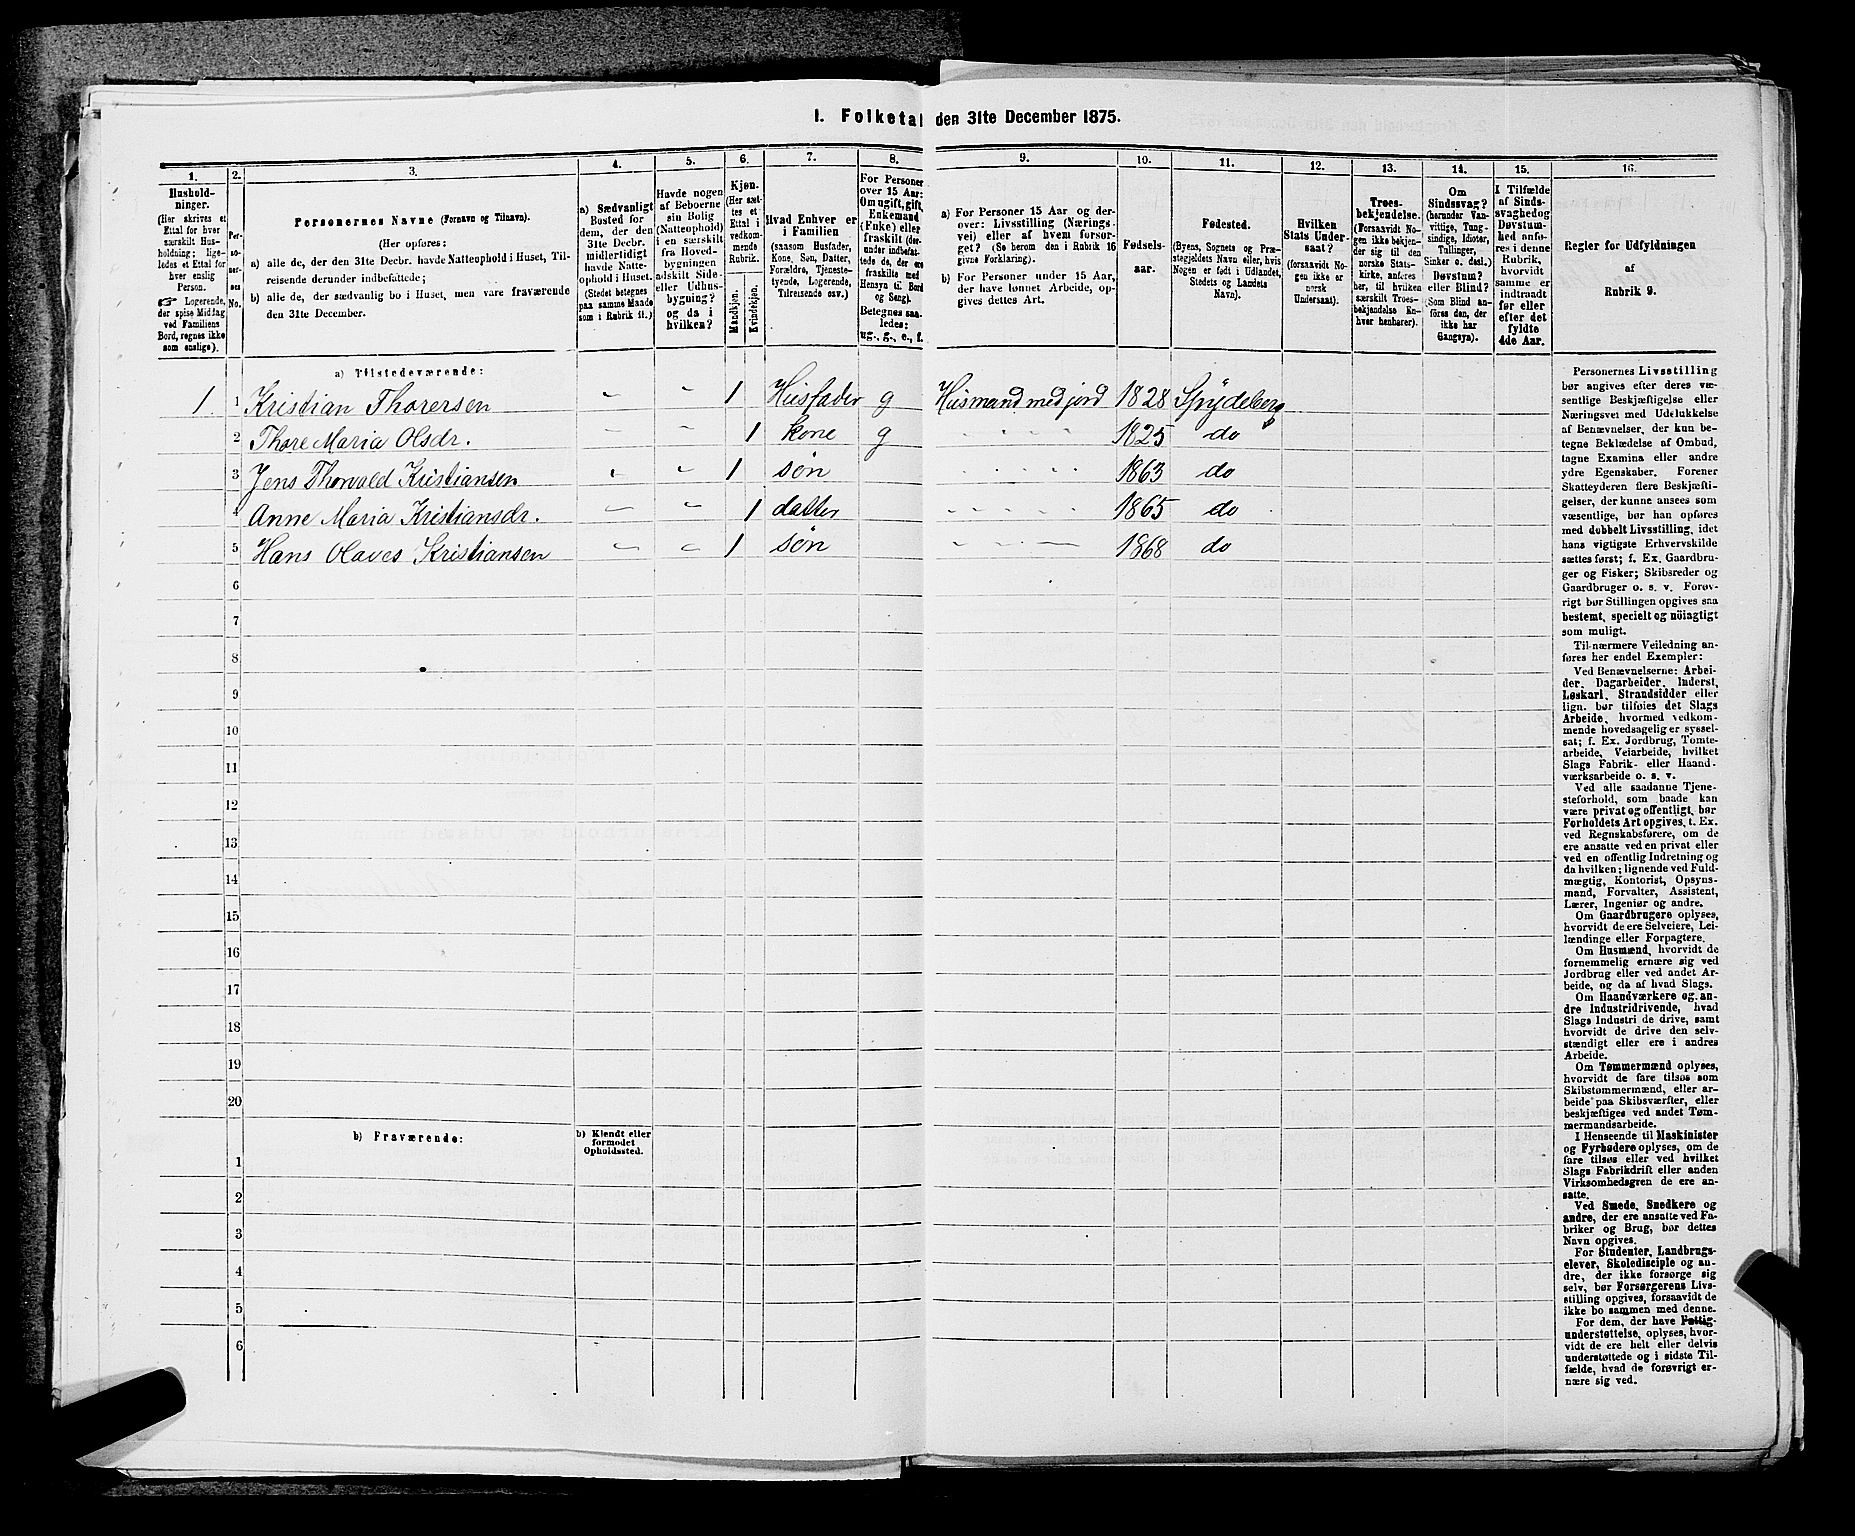 I. Folketal den 31te December 1875.
1.
Hushold-
ninger.
(Her skrives et
Ettal for hver
særskilt Hus-
holdning; lige-
ledes et Ettal for
hver enslig
Person.
☞ Logerende,
der spise Middag
ved Familiens
Bord, regnes ikke
som enslige).
2.
Per-
soner-
nes
No.
3.
Personernes Navne (Fornavn og Tilnavn).
(Her opføres:
a) alle de, der den 31te Decbr. havde Natteophold i Huset, Til-
reisende derunder indbefattede;
b) alle de, der sædvanlig bo i Huset, men vare fraværende
den 31te December.
4.
a) Sædvanligt
Bosted for
dem, der den
31te Decbr.
midlertidigt
havde Natte-
ophold i Huset.
(Stedet betegnes
paa samme Maade
som i Rubrik 11.)
5.
Havde nogen
af Beboerne
sin Bolig
(Natteophold)
i en særskilt
fra Hoved-
bygningen
adskilt Side-
eller Udhus-
bygning?
og da i
hvilken?
6.
Kjøn.
(Her sæt-
tes et
Ettal i
vedkom-
mende
Rubrik.
Mandkjøn.
Kvindekjøn.
7.
Hvad Enhver er
i Familien
(saasom Husfader,
Kone, Søn, Datter,
Forældre, Tjeneste-
tyende, Logerende,
Tilreisende osv.)
8.
For Personer
over 15 Aar:
Om ugift, gift,
Enkemand
(Enke) eller
fraskilt (der-
under indbefat-
tede de, der ere
fraskilte med
Hensyn til Bord
og Seng).
Betegnes saa-
ledes:
ug., g., e., f.
9.
a) For Personer 15 Aar og der-
over: Livsstilling (Nærings-
vei) eller af hvem forsør-
get? (Se herom den i Rubrik 16
givne Forklaring).
b) For Personer under 15 Aar,
der have lønnet Arbeide, op-
gives dettes Art.
10.
Fødsels-
aar.
11.
Fødested.
(Byens, Sognets og Præ-
stegjeldets Navn eller, hvis
Nogen er født i Udlandet,
Stedets og Landets
Navn).
12.
Hvilken
Stats Under-
saat?
(forsaavidt No-
gen ikke er
norsk
Undersaat).
13.
Troes-
bekjendelse.
(Forsaavidt No-
gen ikke bekjen-
der sig til den
norske Stats-
kirke, anføres
her, til hvilken
særskilt Troes-
bekjendelse En-
hver henhører).
14.
Om
Sindssvag?
(herunder Van-
vittige, Tung-
sindige, Idioter,
Tullinger,
Sinker o. desl.)
Døvstum?
eller Blind?
(Som Blind an-
føres den, der
ikke har
Gangsyn).
15.
I Tilfælde
af Sinds-
svaghed og
Døvstum-
hed anfø-
res i denne
Rubrik,
hvorvidt
samme er
indtraadt
før eller
efter det
fyldte
4de Aar.
16.
Regler for Udfyldningen
af
Rubrik 9.
a) Tilstedeværende:
1. 1 Kristian Thorersen " " 1 Husfader g Husmand med jord 1828 Spydeberg
2 Thore Maria Olsdr. " " 1 kone g " " " " 1825 do
3 Jens Thorvald Kristiansen " " 1 søn " " " " 1863 do
4 Anne Maria Kristiansdr. " " 1 datter " " " " 1865 do
5 Hans Olaves Kristiansen " " 1 søn " " " " 1868 do
6
7
8
9
10
11
12
13
14
15
16
17
18
19
20
b) Fraværende:
b) Kjendt eller
formodet
Opholdssted.
1
2
3
4
5
6
Personernes Livsstilling
bør angives efter deres væ-
sentlige Beskjæftigelse eller
Næringsvei med Udelukkelse
af Benævnelser, der kun be-
tegne Beklædelse af Ombud,
tagne Examina eller andre
ydre Egenskaber. Forener
Skatteyderen flere Beskjæfti-
gelser, der kunne ansees som
væsentlige, bør han opføres
med dobbelt Livsstilling, idet
hans vigtigste Erhvervskilde
sættes først; f. Ex. Gaardbru-
ger og Fisker; Skibsreder og
Gaardbruger o. s. v. Forøv-
rigt bør Stillingen opgives saa
bestemt, specielt og nöiagtigt
som muligt.
Til nærmere Veiledning an-
føres her endel Exempler:
Ved Benævnelserne: Arbei-
der, Dagarbeider, Inderst,
Løskarl, Strandsidder eller
lign. bør tilføies det Slags
Arbeide, hvormed vedkom-
mende hovedsagelig er syssel-
sat; f. Ex. Jordbrug, Tomte-
arbeide, Veiarbeide, hvilket
Slags Fabrik- eller Haand-
værksarbeide o. s. v.
Ved alle saadanne Tjene-
steforhold, som baade kan
være privat og offentligt, bør
Forholdets Art opgives, t. Ex.
ved Regnskabsførere, om de
ere ansatte ved en privat eller
ved en offentlig Indretning og
da hvilken; lignende ved Fuld-
mægtig, Kontorist, Opsyns-
mand, Forvalter, Assistent,
Lærer, Ingeniør og andre.
Om Gaardbrugere oplyses,
hvorvidt de ere Selveiere, Lei-
lændinge eller Forpagtere.
Om Husmænd, hvorvidt de
fornemmelig ernære sig ved
Jordbrug eller ved andet Ar-
beide, og da af hvad Slags.
Om Haandværkere og an-
dre Industridrivende, hvad
Slags Industri de drive, samt
hvorvidt de drive den selv-
stændigt eller ere i andres
Arbeide.
Om Tømmermænd oplyses,
hvorvidt de fare tilsøs som
Skibstømmermænd, eller ar-
beide paa Skibsværfter, eller
beskjæftiges ved andet Tøm-
mermandsarbeide.
I Henseende til Maskinister
og Fyrbødere oplyses, om de
fare tilsøs eller ved hvilket
Slags Fabrikdrift eller anden
Virksomhedsgren de ere an-
satte.
Ved Smede, Snedkere og
andre, der ere ansatte ved Fa-
briker og Brug, bør dettes
Navn opgives.
For Studenter, Landbrugs-
elever, Skoledisciple og an-
dre, der ikke forsørge sig
selv, bør Forsørgerens Livs-
stilling opgives, forsaavidt de
ikke bo sammen med denne.
For dem, der have Fattig-
understøttelse, oplyses, hvor-
vidt de ere helt eller delvis
understøttede og i sidste Til-
fælde, hvad de forøvrigt er-
nære sig ved.